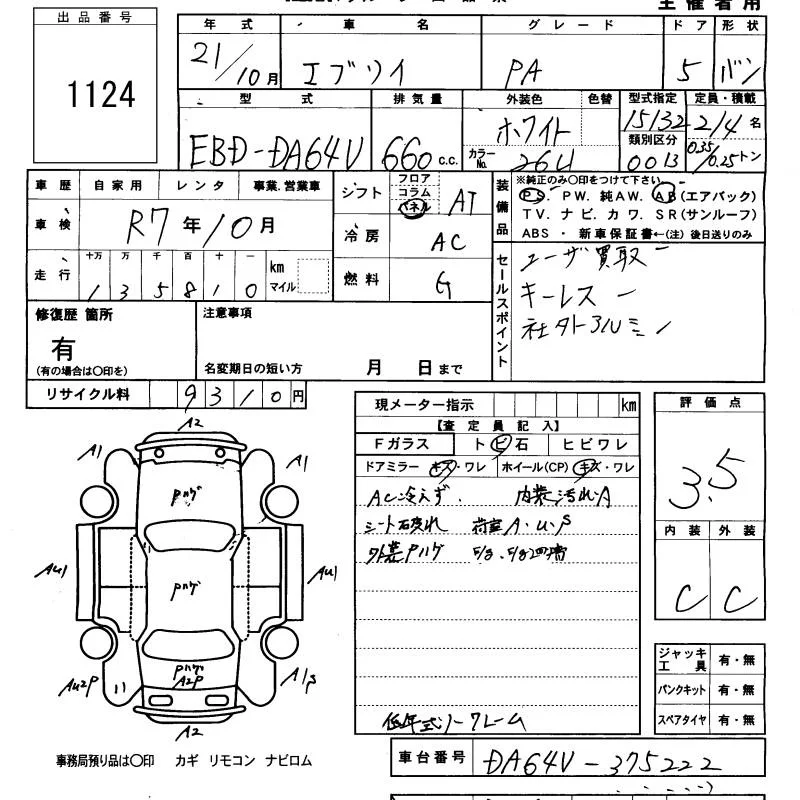 主催者用
出品番号
1124
年式 車名 グレード ドア 形状
21/10月 エブリイ PA 5 バン
型式 排気量 外装色 色替 型式指定 定員・積載
EBD-DA64V 660c.c. ホワイト カラーNo. 26U 15132 類別区分 0013 2/4名 0.35/0.25トン
車歴 自家用 レンタ 事業.営業車
車検 R7年10月
走行 十万 万 千 百 十 一 km マイル
135810
シフト フロア コラム パネル AT
冷房 AC
燃料 G
装備品
※純正のみ〇印をつけて下さい
PS. PW. 純AW. AB(エアバック)
TV. ナビ. カワ. SR(サンルーフ)
ABS・新車保証書←(注) 後日送りのみ
セールスポイント
ユーザ買取
キーレス
修復歴 箇所
有
(有の場合は〇印を)
注意事項
名変期日の短い方 月 日まで
リサイクル料 9310円
現メーター指示 km
【査定員記入】
Fガラス トビ石 ヒビワレ
ドアミラー キズ・ワレ ホイール(CP) キズ・ワレ
AC冷えず. 内装汚れ.A
シート破れ 荷室A.U.P
外装Pハゲ
低年式ノークレーム
評価点
3.5
内装 外装
C C
ジャッキ工具 有・無
パンクキット 有・無
スペアタイヤ 有・無
A2
A1 A1
Pハゲ
AU1 AU1
Pハゲ
Pハゲ
A2P
AU2P
A2
事務局預り品は〇印 カギ リモコン ナビロム
車台番号 DA64V-375222